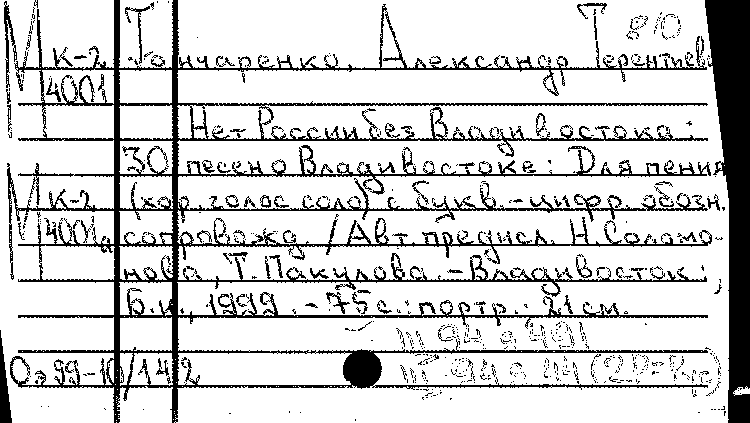 810
М К-2 Гончаренко, Александр Терентьев
4001
Нет России без Владивостока :
30 песен о Владивостоке : Для пения
М К-2 (хор, голос соло) с букв.-цифр. обозн.
4001а сопровожд. / Авт. предисл. Н. Соломо-
нова, Т. Пакулова. - Владивосток : ,
Б.и., 1999. - 75 с. : портр. ; 21 см.
III 94 а 491
Оэ 99-10/142 III 94 а 44